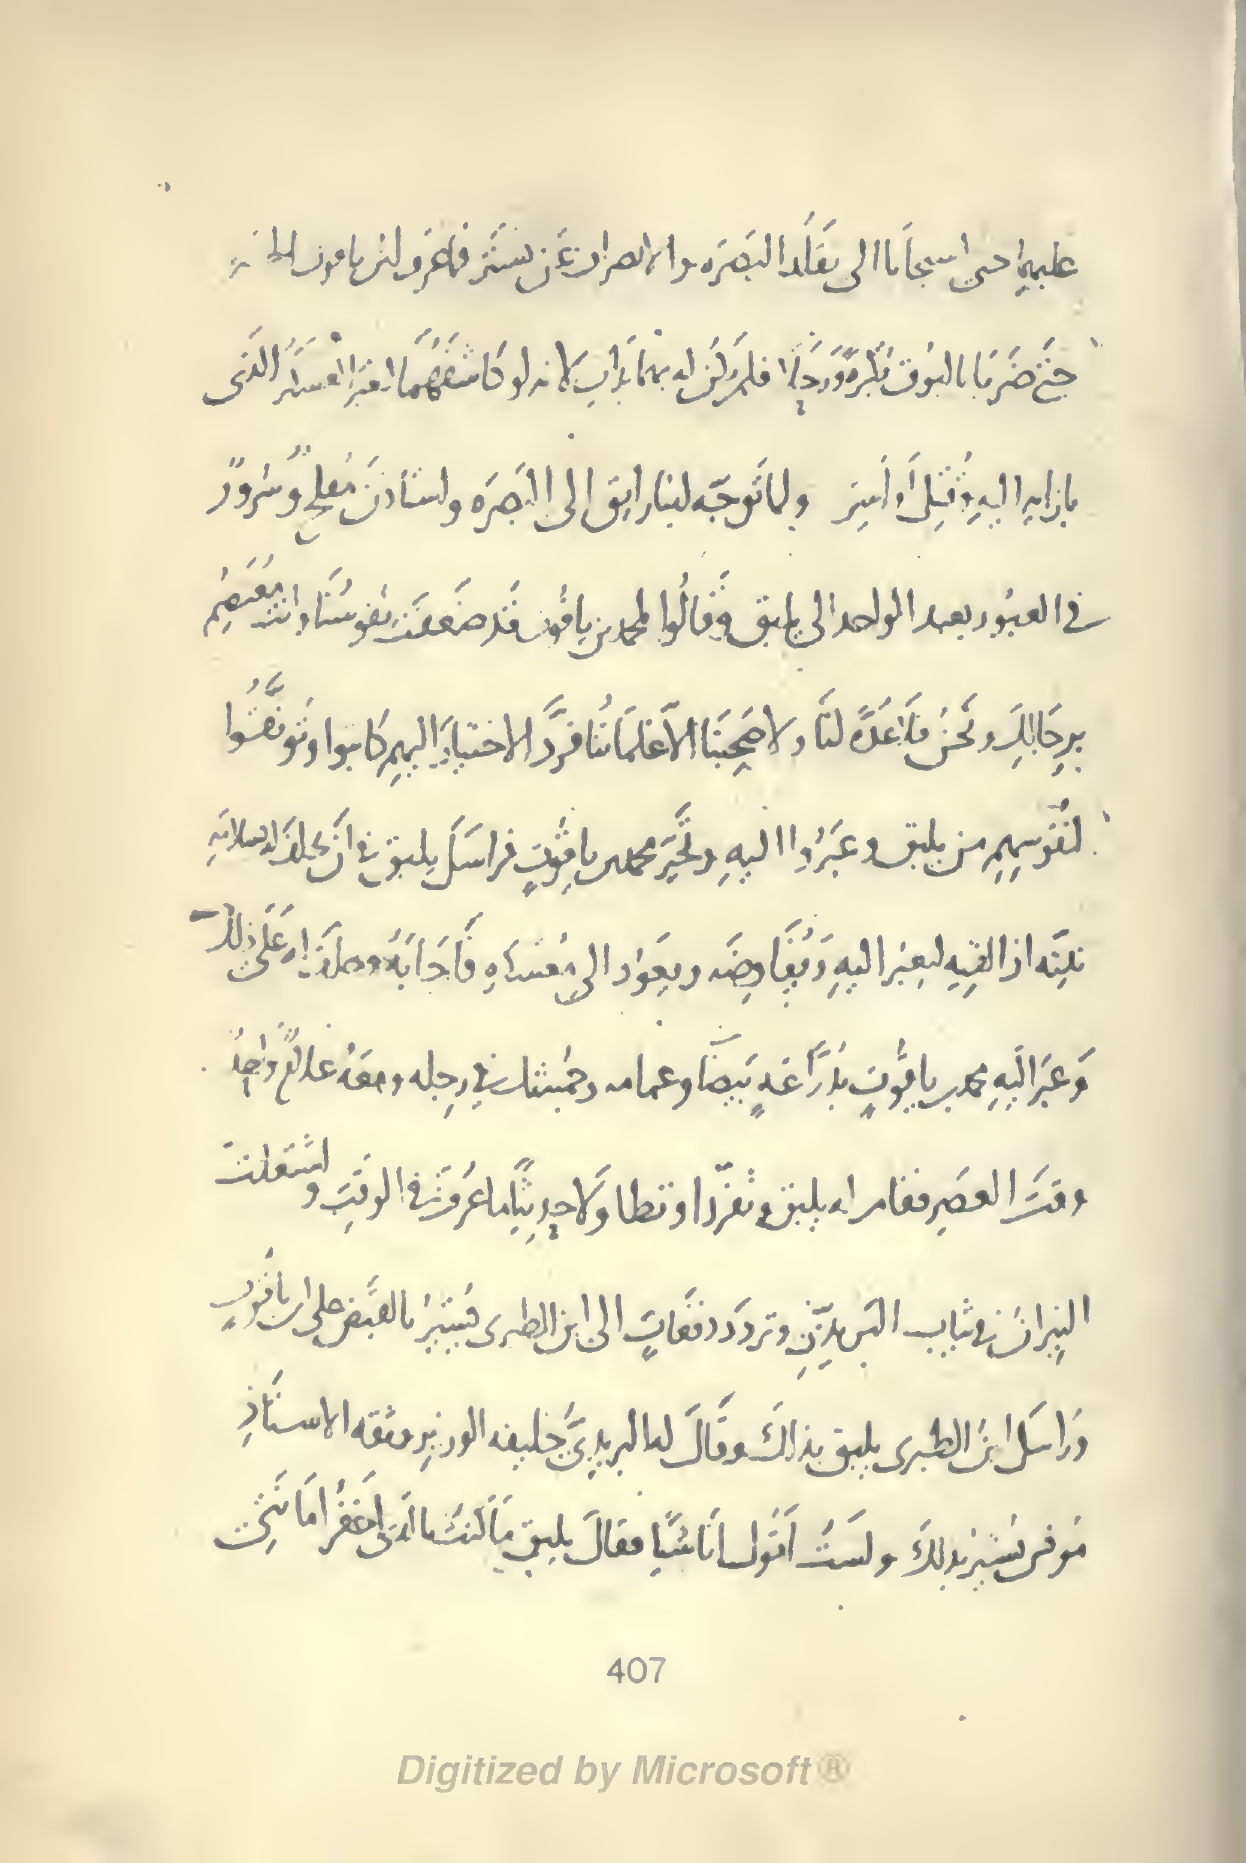 عليهما حتى استجابا الى تقلد البصرة والانصراف عن تستر فما عرف ابن ياقوت
حتى ضربا بالبوق بكرة ورحلا فلم يكن له بهما يدان لانه لو كاشفهما لعبر العسكر الذى
بازايه اليه وقتل أو أسر ولما توجه ابنا رايق الى البصرة واستأذن مفلح وسرور
فى العبور بعبد الواحد الى يلبق وقالوا لمحمد بن ياقوت قد ضعفت نفوسنا وانت معتصم
برجالك ونحن فلا عدة لنا ولا صحبنا الا غلماننا فرد الاختيار اليهم كاتبوا وتوثقوا
لنفوسهم من يلبق وعبروا اليه وتحير محمد بن ياقوت فراسل يلبق فى ان يحلف له بسلامة
نيته اذا لقيه ليعبر اليه ويفاوضه ويعود الى معسكره فأجابه وحلف له على ذلك
وعبر اليه محمد بن ياقوت بدراعة بيضا وعمامة وشمشك فى رجله ومعه غلام واحد
وقت العصر فقام له يلبق وتفردا وتطاولا حديثا ما عرف فى الوقت واشتعلت
النيران فى ثياب البريديين وتردد دفعات الى ابن الطبرى فيشير بالقبض على ابن ياقوت
وراسل ابن الطبرى يلبق بذلك وقال له البريدى خليفة الوزير وثقة الاستاذ
مونس يشير بذلك ولست أقول انا شيا فقال يلبق ما كنت بالذى اخفر امانتى
407
Digitized by Microsoft®